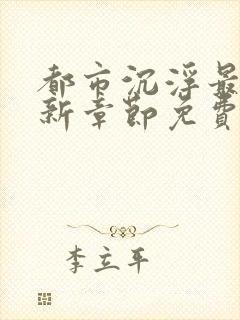 都市沉浮最
新章節免費
李立平